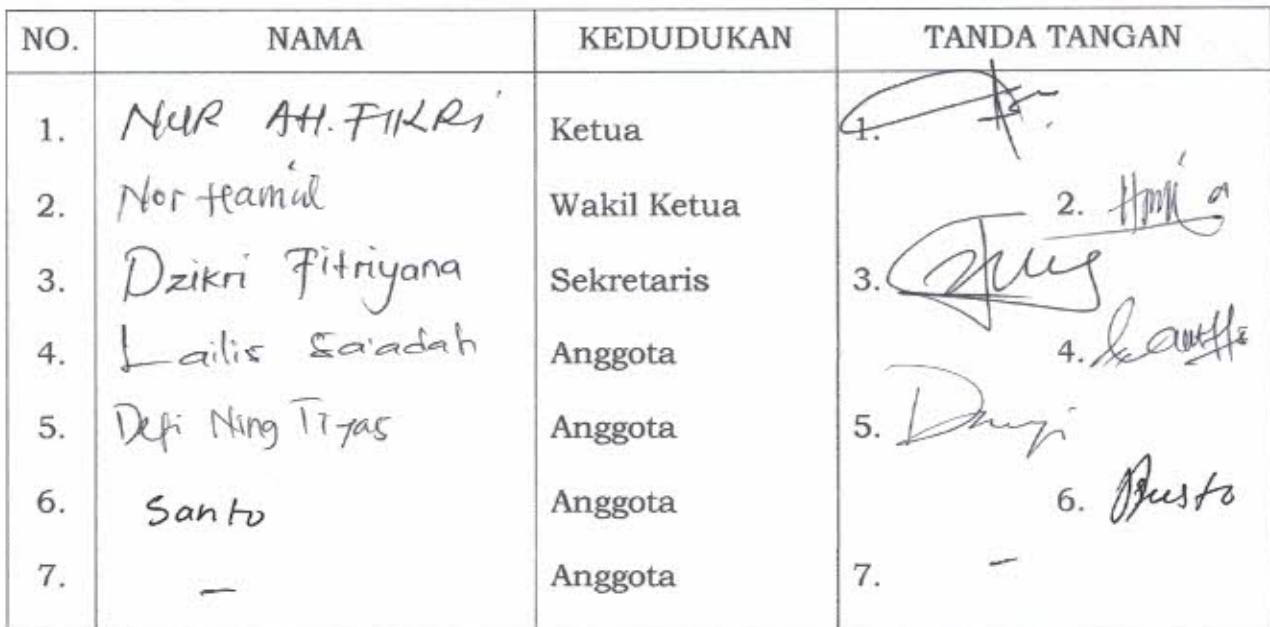 NO. NAMA KEDUDUKAN TANDA TANGAN
1. NUR AH. FIKRI Ketua 1.
2. Nor Hamid Wakil Ketua 2.
3. Dzikri Fitriyana Sekretaris 3.
4. Lailis Sa'adah Anggota 4.
5. Defi Ning Tiyas Anggota 5.
6. Santo Anggota 6.
7. - Anggota 7. -